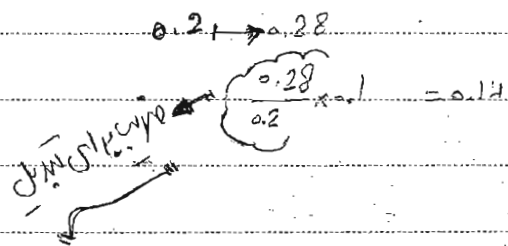 0.2 → 0.28
0.28/0.2 × 0.1 = 0.14
ضریب برای تبدیل